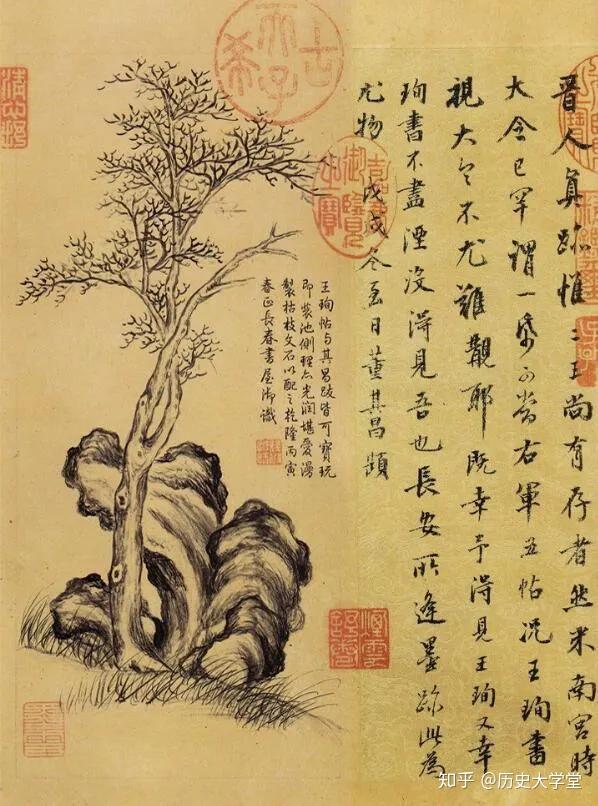 晉人真跡惟二王尚有存者然米南宮時
大令已罕謂一帋可當右軍五帖況王珣書
視大令不尤難覯耶既幸予得見王珣又幸
珣書不盡湮沒得見吾也長安所逢墨跡此為
尤物 戊戌冬至日董其昌題
王珣帖與其昌跋皆可寶玩
即裝池側理亦光潤堪愛漫
製枯枝文石以配之乾隆丙寅
春正長春書屋御識
古希天子
嘉慶御覽之寶
知乎 @历史大学堂